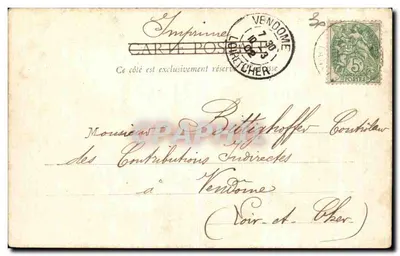 Imprimé
CARTE POSTALE
Ce côté est exclusivement réservé
VENDOME
7 30
10 3
02
LOIR-ET-CHER
5
Monsieur Bitterhoffer Contrôleur
des Contributions Indirectes
à
Vendôme
(Loir-et-Cher)